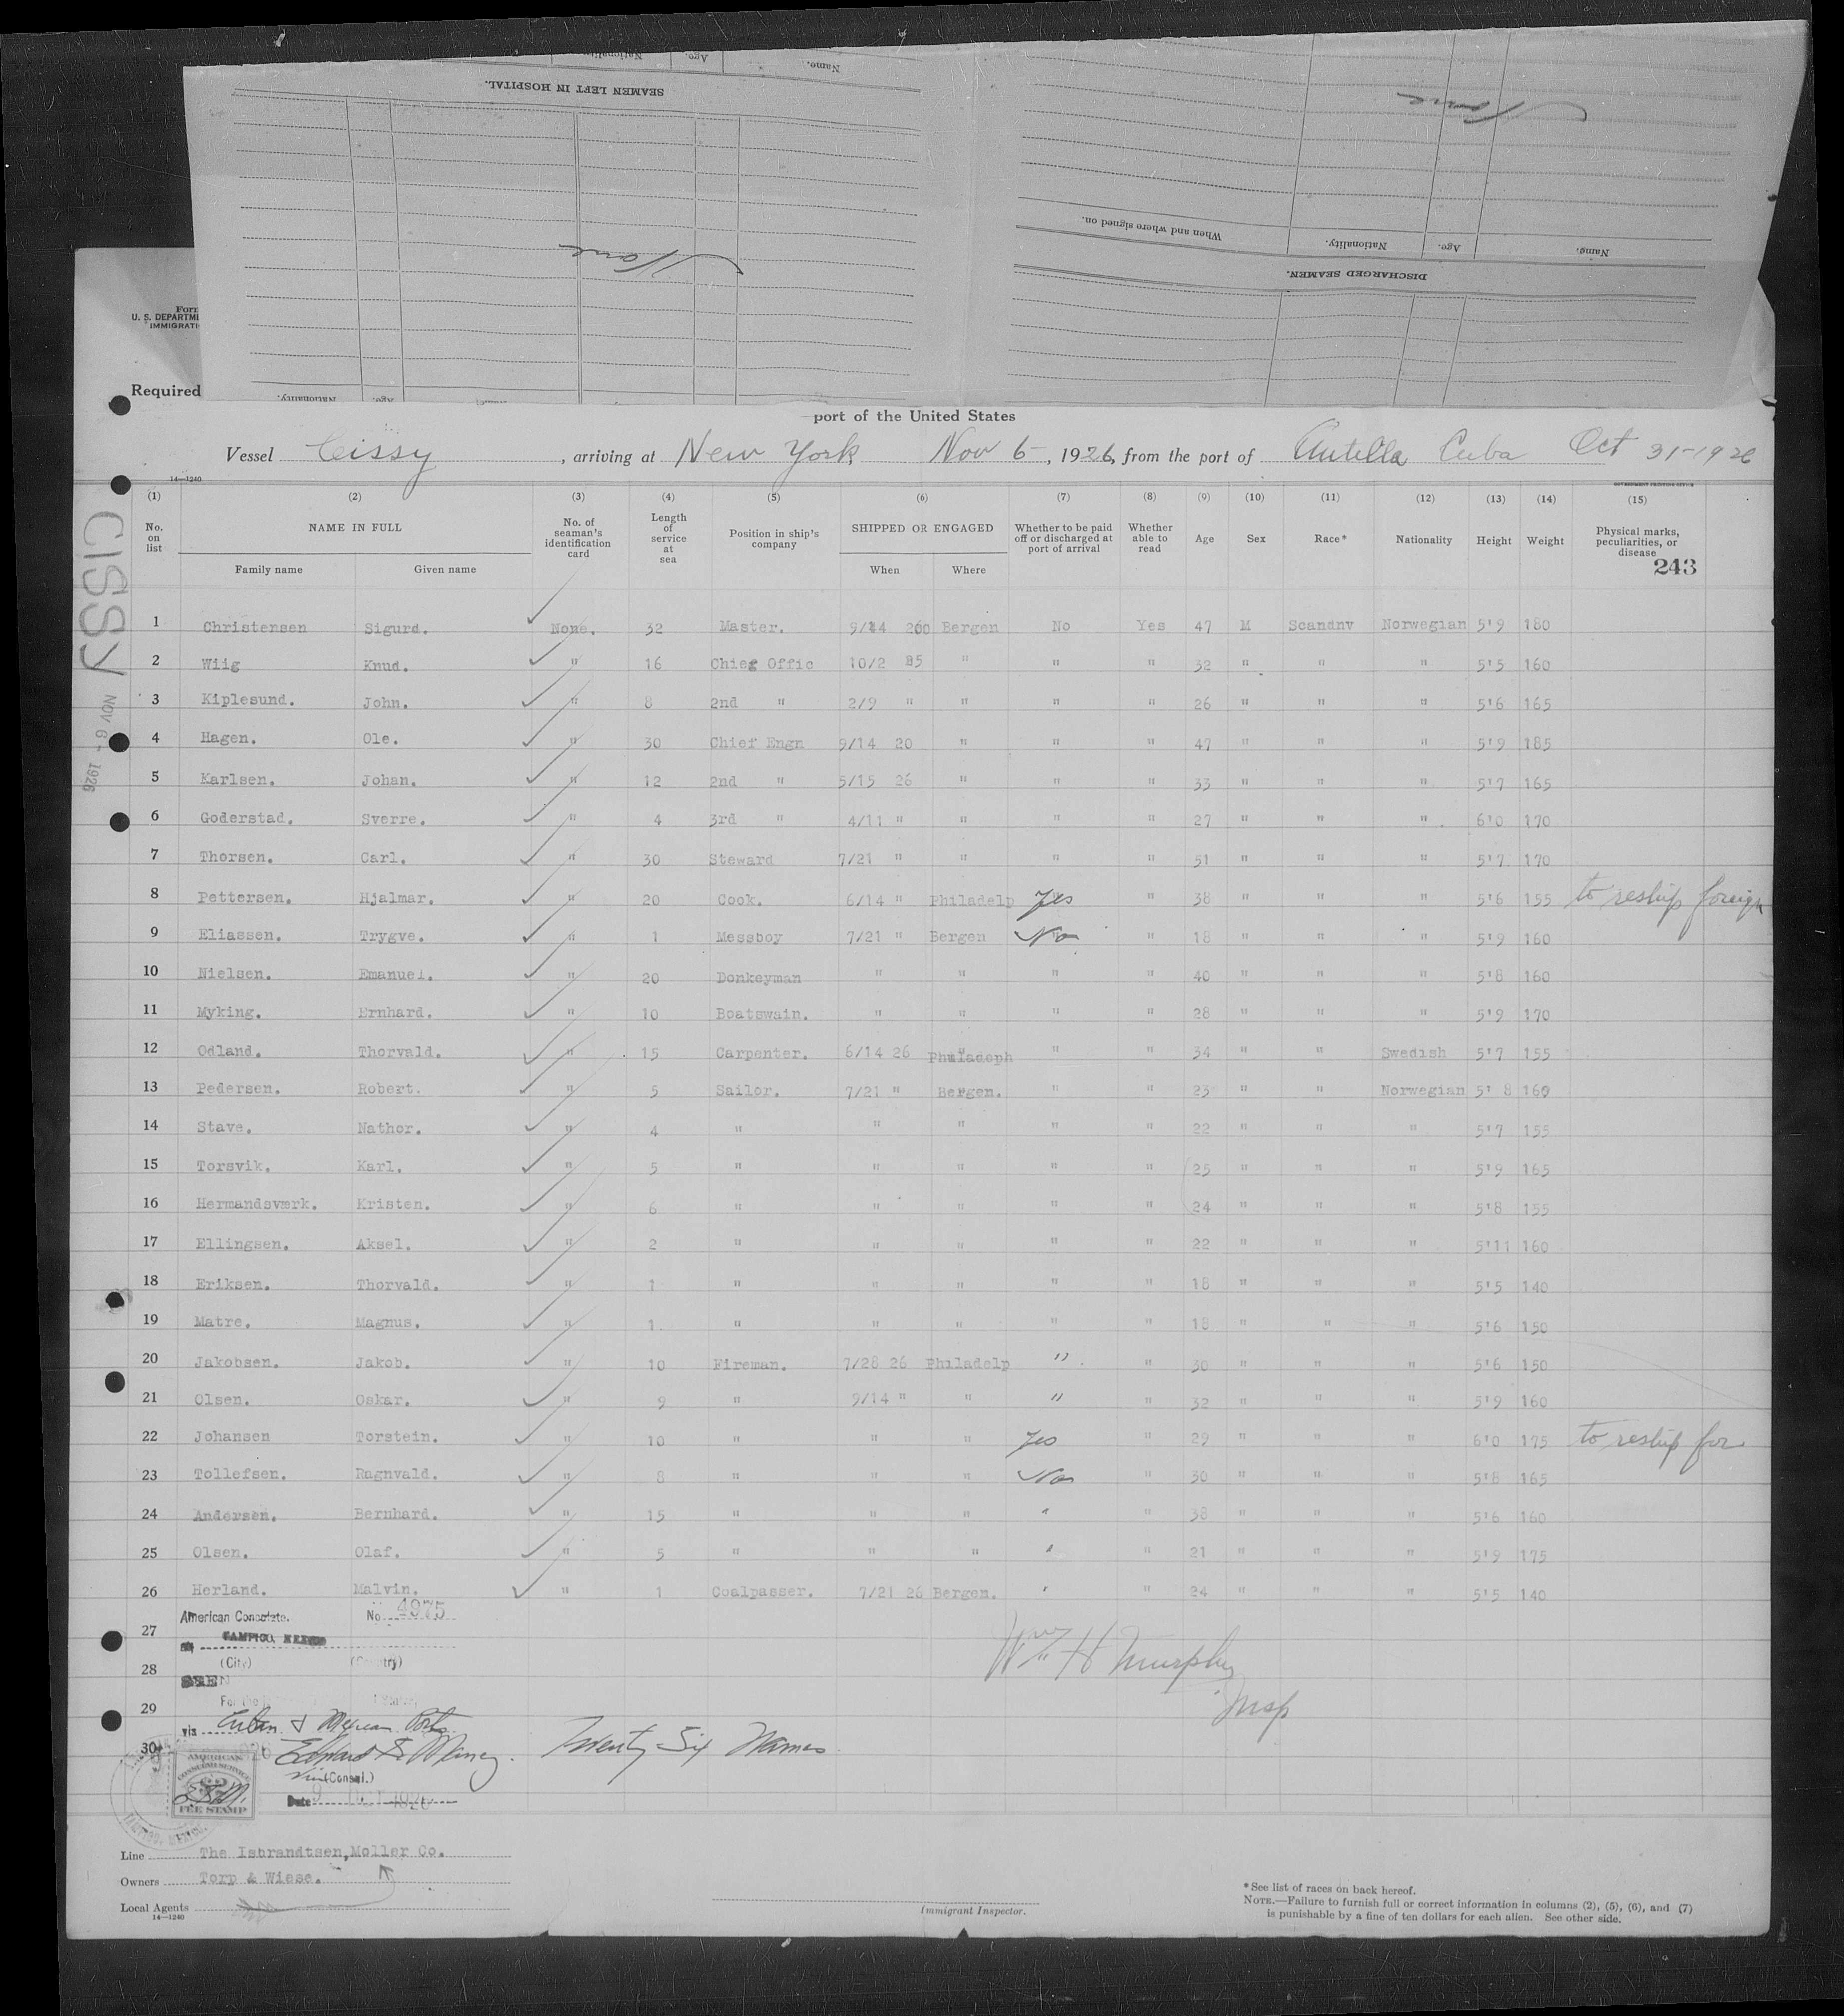 Name. Age. Nationality.
SEAMEN LEFT IN HOSPITAL.
None
None
When and where signed on. Nationality. Age. Name.
DISCHARGED SEAMEN.
Nationality. Age.
Form
U. S. DEPARTME
IMMIGRATI
Required
port of the United States
Vessel Cissy, arriving at New York Nov 6-, 1926, from the port of Antilla Cuba Oct 31-1926
14—1240
GOVERNMENT PRINTING OFFICE
CISSY
NOV 6- 1926
(1) (2) (3) (4) (5) (6) (7) (8) (9) (10) (11) (12) (13) (14) (15)
No. on list NAME IN FULL No. of seaman's identification card Length of service at sea Position in ship's company SHIPPED OR ENGAGED Whether to be paid off or discharged at port of arrival Whether able to read Age Sex Race* Nationality Height Weight Physical marks, peculiarities, or disease
Family name Given name When Where
243
1 Christensen Sigurd. None. 32 Master. 9/14 20 Bergen No Yes 47 M Scandnv Norwegian 5'9 180
2 Wiig Knud. " 16 Chief Offic 10/2 25 " " " 32 " " " 5'5 160
3 Kiplesund. John. " 8 2nd " 2/9 " " " " 26 " " " 5'6 165
4 Hagen. Ole. " 30 Chief Engn 9/14 20 " " " 47 " " " 5'9 185
5 Karlsen. Johan. " 12 2nd " 5/15 26 " " " 33 " " " 5'7 165
6 Goderstad. Sverre. " 4 3rd " 4/11 " " " " 27 " " " 6'0 170
7 Thorsen. Carl. " 30 Steward 7/21 " " " " 51 " " " 5'7 170
8 Pettersen. Hjalmar. " 20 Cook. 6/14 " Philadelp Yes " 38 " " " 5'6 155 to reship foreign
9 Eliassen. Trygve. " 1 Messboy 7/21 " Bergen No " 18 " " " 5'9 160
10 Nielsen. Emanuel. " 20 Donkeyman " " " " 40 " " " 5'8 160
11 Myking. Ernhard. " 10 Boatswain. " " " " 28 " " " 5'9 170
12 Odland. Thorvald. " 15 Carpenter. 6/14 26 Philadeph " " 34 " " Swedish 5'7 155
13 Pedersen. Robert. " 5 Sailor. 7/21 " Bergen. " " 23 " " Norwegian 5' 8 160
14 Stave. Nathor. " 4 " " " " " 22 " " " 5'7 155
15 Torsvik. Karl. " 5 " " " " " 25 " " " 5'9 165
16 Hermandsværk. Kristen. " 6 " " " " " 24 " " " 5'8 155
17 Ellingsen. Aksel. " 2 " " " " " 22 " " " 5'11 160
18 Eriksen. Thorvald. " 1 " " " " " 18 " " " 5'5 140
19 Matre. Magnus. " 1 " " " " " 18 " " " 5'6 150
20 Jakobsen. Jakob. " 10 Fireman. 7/28 26 Philadelp " " 30 " " " 5'6 150
21 Olsen. Oskar. " 9 " 9/14 " " " " 32 " " " 5'9 160
22 Johansen Torstein. " 10 " " " Yes " 29 " " " 6'0 175 to reship for
23 Tollefsen. Ragnvald. " 8 " " " No " 30 " " " 5'8 165
24 Andersen. Bernhard. " 15 " " " " " 38 " " " 5'6 160
25 Olsen. Olaf. " 5 " " " " " 21 " " " 5'9 175
26 Herland. Malvin. " 1 Coalpasser. 7/21 26 Bergen. " " 24 " " " 5'5 140
American Consulate. No. 4975
27
at TAMPICO, MEXICO
(City) (Country)
28
SEEN
Wm H Murphy
Insp
29
For the
via Cuban & Mexican Ports
30
Twenty-Six Names
Vice (Consul.)
AMERICAN
CONSULAR SERVICE
FEE STAMP
Date 9 1926
Line The Isbrandtsen, Moller Co.
Owners Torp & Wiese.
Local Agents
14—1240
Immigrant Inspector.
*See list of races on back hereof.
NOTE.—Failure to furnish full or correct information in columns (2), (5), (6), and (7)
is punishable by a fine of ten dollars for each alien. See other side.